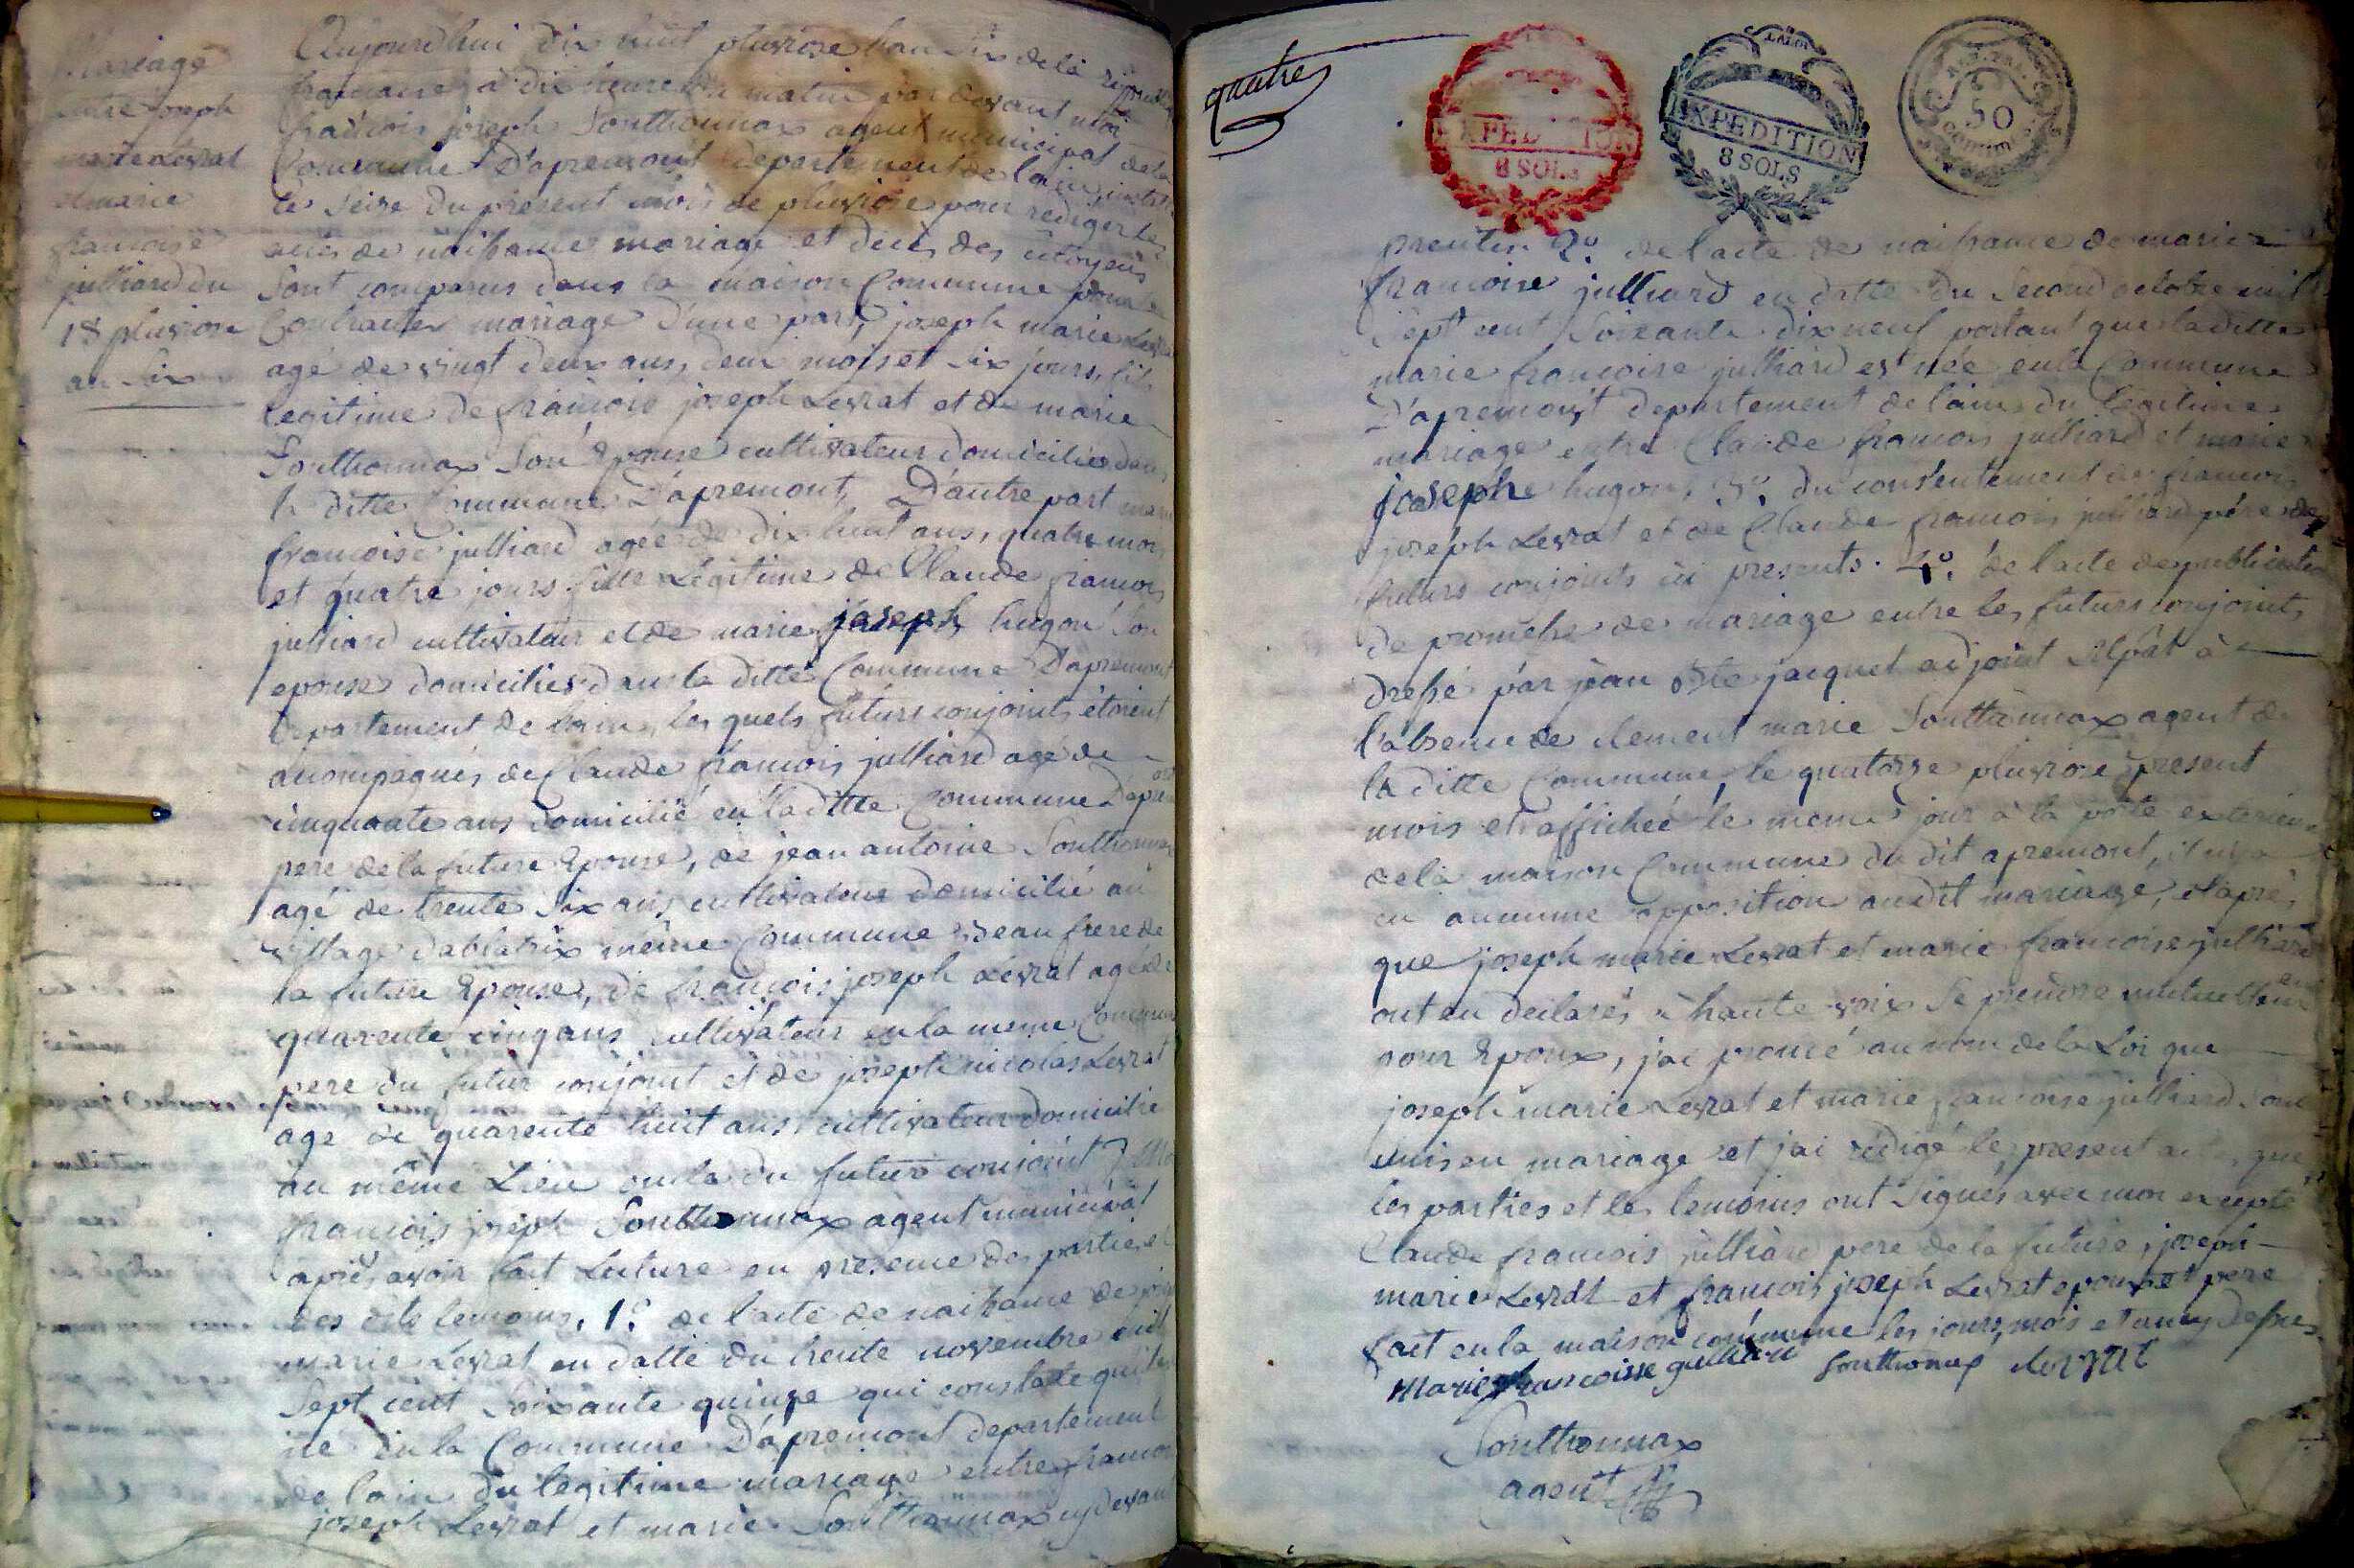 Mariage
entre joseph
marie Levrat
et marie
francoise
julliard du
18 pluviose
an six
Aujourdhui dix huit pluviose l'an six de la republique
francaise, à dix heures du matin par devant moi
francois joseph Southonnax agent municipal de la
Commune D'apremont departement de lain,
le seize du present mois de pluviose pour rediger les
actes de naissance mariage et decès des citoyens
sont comparus dans la maison Commune pour
Contracter mariage D'une part, joseph marie Levrat
agé de vingt deux ans, deux mois et six jours, fils
legitime de francois joseph Levrat et de marie
Southonnax son Epouse cultivateur domiciliés dans
la ditte Commune D'apremont, D'autre part marie
francoise julliard agée de dix huit ans, quatre mois
et quatre jours fille Legitime de Claude francois
julliard cultivateur et de marie joseph hugon son
epouse domiciliés dans la ditte Commune D'apremont
departement de lain, les quels futurs conjoints étoient
acompagnés de Claude francois julliard agé de
cinquante ans domicilié en la ditte Commune D'apremont
pere de la future Epouse, de jean antoine Southonnax
agé de trente six ans cultivateur domicilié au
village dablatrix même Commune beau frere de
la future Epouse, de francois joseph Levrat agé de
quarente cinq ans cultivateur en la meme Commune
pere du futur conjoint et de joseph nicolas Levrat
age de quarente huit ans cultivateur domicilié
au même Lieu oncle du futur conjoint
francois joseph Southonnax agent municipal
après avoir fait Lecture en presence des parties et
des dits temoins, 1º. de l'acte de naissance de joseph
marie Levrat en datte du trente novembre mil
sept cent soixante quinze qui constate qu'il est
né en la Commune D'apremont departement
de lain du legitime mariage entre francois
joseph Levrat et marie Southonnax cy devant
quatre
EXPEDITION
8 SOLS
EXPEDITION
8 SOLS
50
2º. de l'acte de naissance de marie
francoise julliard en datte du second octobre mil
sept cent soixante dix neuf portant que la ditte
marie francoise julliard est née en la Commune
D'apremont departement de lain du Legitime
mariage entre Claude francois julliard et marie
josephe hugon, 3º. du consentement de francois
joseph Levrat et de Claude francois julliard pére des
futurs conjoints ici presents. 4º. de l'acte de publication
de promesse de mariage entre les futurs conjoints
dressé par jean Bte jacquet adjoint mpal à
l'absence de clement marie Southonnax agent de
la ditte Commune, le quatorze pluviose present
mois et affichée le meme jour à la porte exterieure
de la maison Commune du dit apremont, il n'y a
eu aucunne opposition audit mariage, et après
que joseph marie Levrat et marie francoise julliard
ont eu declarés à haute voix se prendre mutuellement
pour Epoux, j'ai prononcé au nom de la Loi que
joseph marie Levrat et marie francoise julliard sont
unis en mariage et j'ai rédigé le present acte, que
les parties et les temoins ont signés avec moi excepté
Claude francois julliard pere de la future, joseph
marie Levrat et francois joseph Levrat epoux et pere
fait en la maison commune les jours, mois et an cy dessus
Marie francoisse guilliard Southonnax Levrat
Southonnax
agent